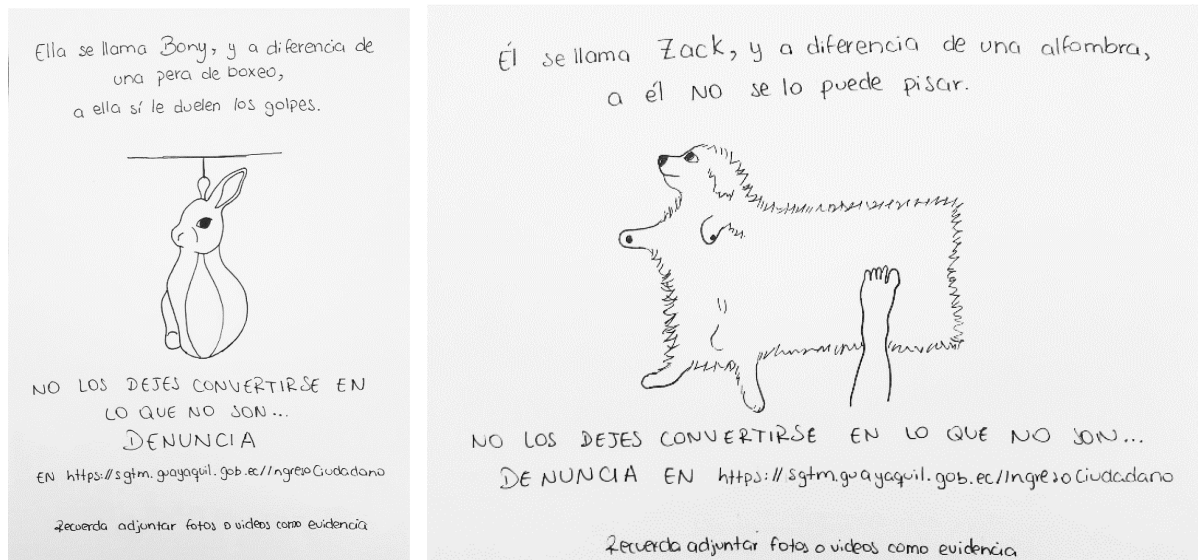 Ella se llama Bony, y a diferencia de
una pera de boxeo,
a ella sí le duelen los golpes.
NO LOS DEJES CONVERTIRSE EN
LO QUE NO SON...
DENUNCIA
EN https://sgtm.guayaquil.gob.ec/IngresoCiudadano
Recuerda adjuntar fotos o videos como evidencia
Él se llama Zack, y a diferencia de una alfombra,
a él NO se lo puede pisar.
NO LOS DEJES CONVERTIRSE EN LO QUE NO SON...
DENUNCIA EN https://sgtm.guayaquil.gob.ec/IngresoCiudadano
Recuerda adjuntar fotos o videos como evidencia